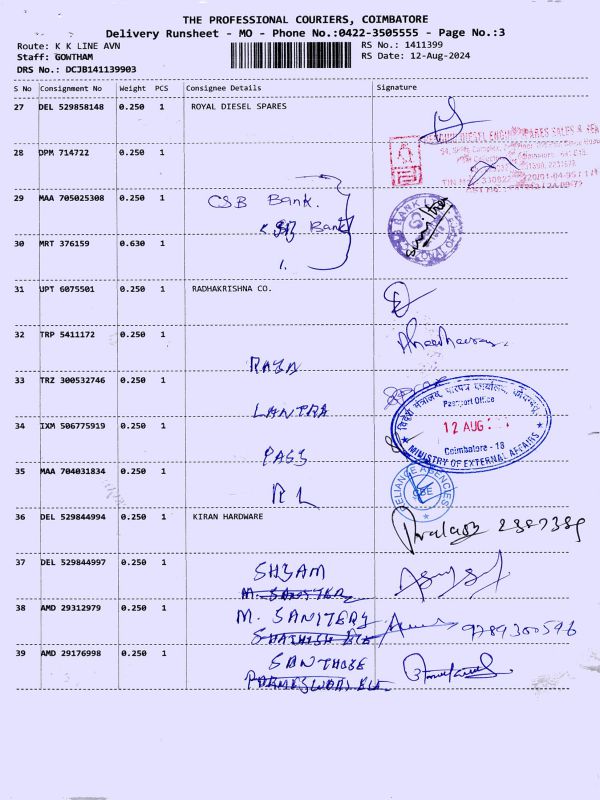 THE PROFESSIONAL COURIERS, COIMBATORE
Delivery Runsheet - MO - Phone No.:0422-3505555 - Page No.:3
Route: K K LINE AVN
RS No.: 1411399
Staff: GOWTHAM
RS Date: 12-Aug-2024
DRS No.: DCJB141139903
S No Consignment No Weight PCS Consignee Details Signature
27 DEL 529858148 0.250 1 ROYAL DIESEL SPARES
28 DPM 714722 0.250 1
29 MAA 705025308 0.250 1 CSB Bank.
CSB Bank
30 MRT 376159 0.630 1
1.
31 UPT 6075501 0.250 1 RADHAKRISHNA CO.
32 TRP 5411172 0.250 1
RAJA
33 TRZ 300532746 0.250 1
LANTRA
Passport Office
34 IXM 506775919 0.250 1
12 AUG
Coimbatore - 18
MINISTRY OF EXTERNAL AFFAIRS
PASS
35 MAA 704031834 0.250 1
RL
RELIANCE AGENCIES
CBE
36 DEL 529844994 0.250 1 KIRAN HARDWARE
37 DEL 529844997 0.250 1
SHYAM
38 AMD 29312979 0.250 1
M. SANITERY
9789300596
39 AMD 29176998 0.250 1
SANTHOSE